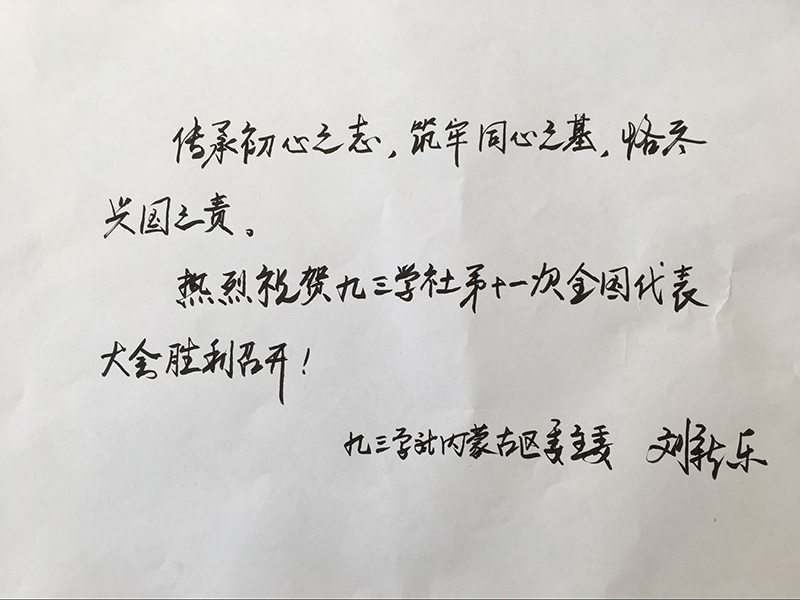 传承初心之志，筑牢同心之基，恪尽
兴国之责。
热烈祝贺九三学社第十一次全国代表
大会胜利召开！
九三学社内蒙古区委主委 刘新乐